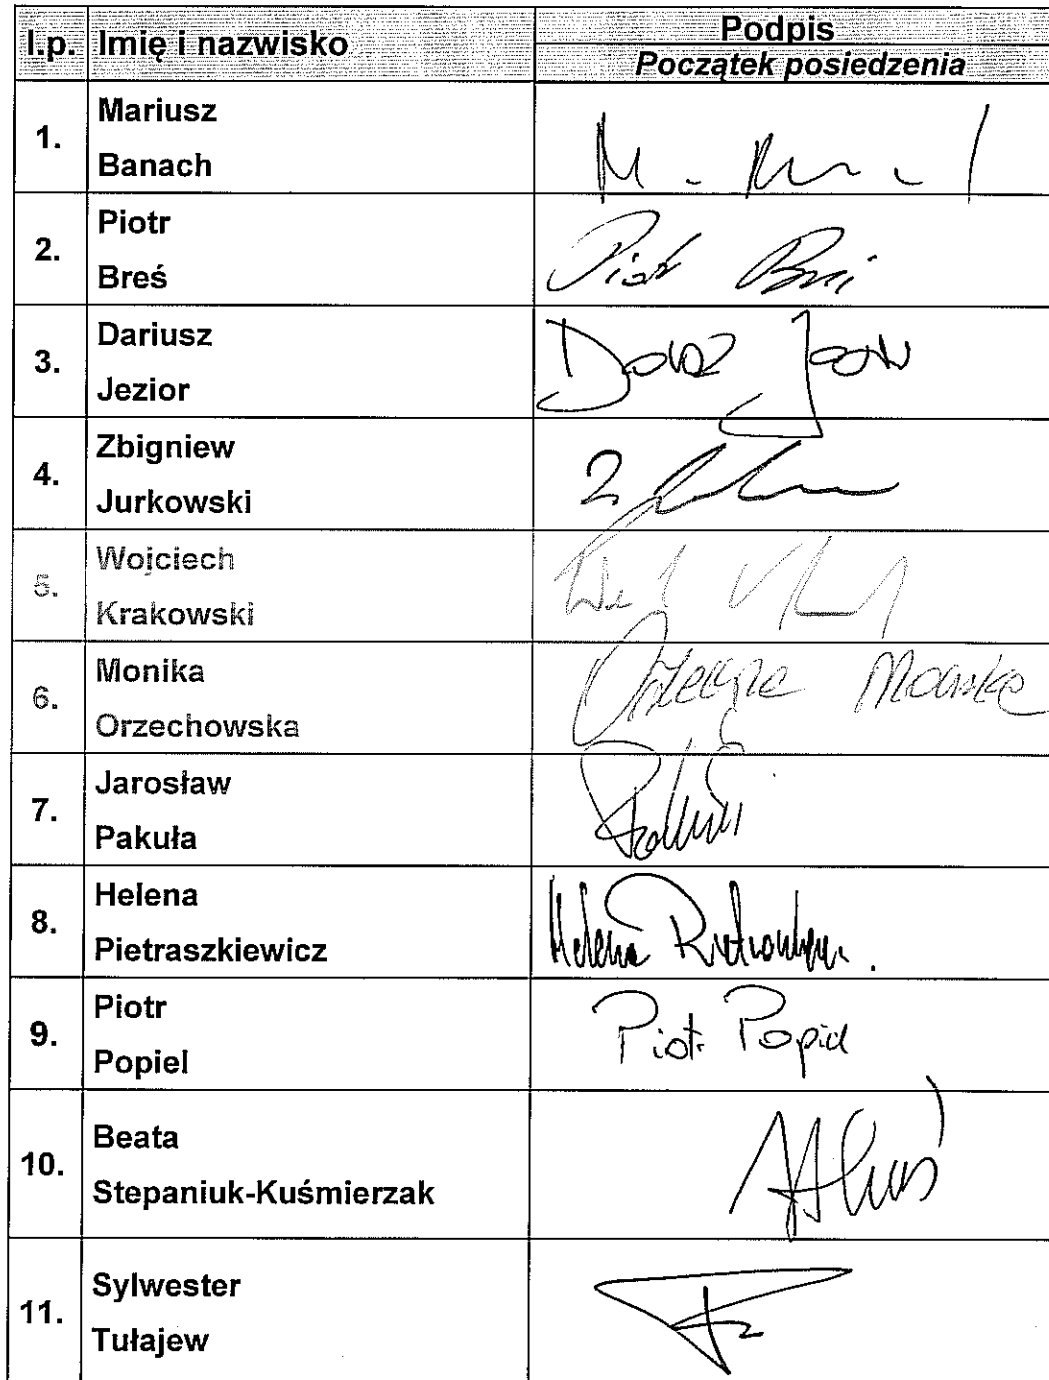 l.p. Imię i nazwisko Podpis
Początek posiedzenia
1. Mariusz
Banach
2. Piotr
Breś
Piotr Breś
3. Dariusz
Jezior
4. Zbigniew
Jurkowski
5. Wojciech
Krakowski
6. Monika
Orzechowska
7. Jarosław
Pakuła
8. Helena
Pietraszkiewicz
Helena
9. Piotr
Popiel
Piotr Popiel
10. Beata
Stepaniuk-Kuśmierzak
11. Sylwester
Tułajew